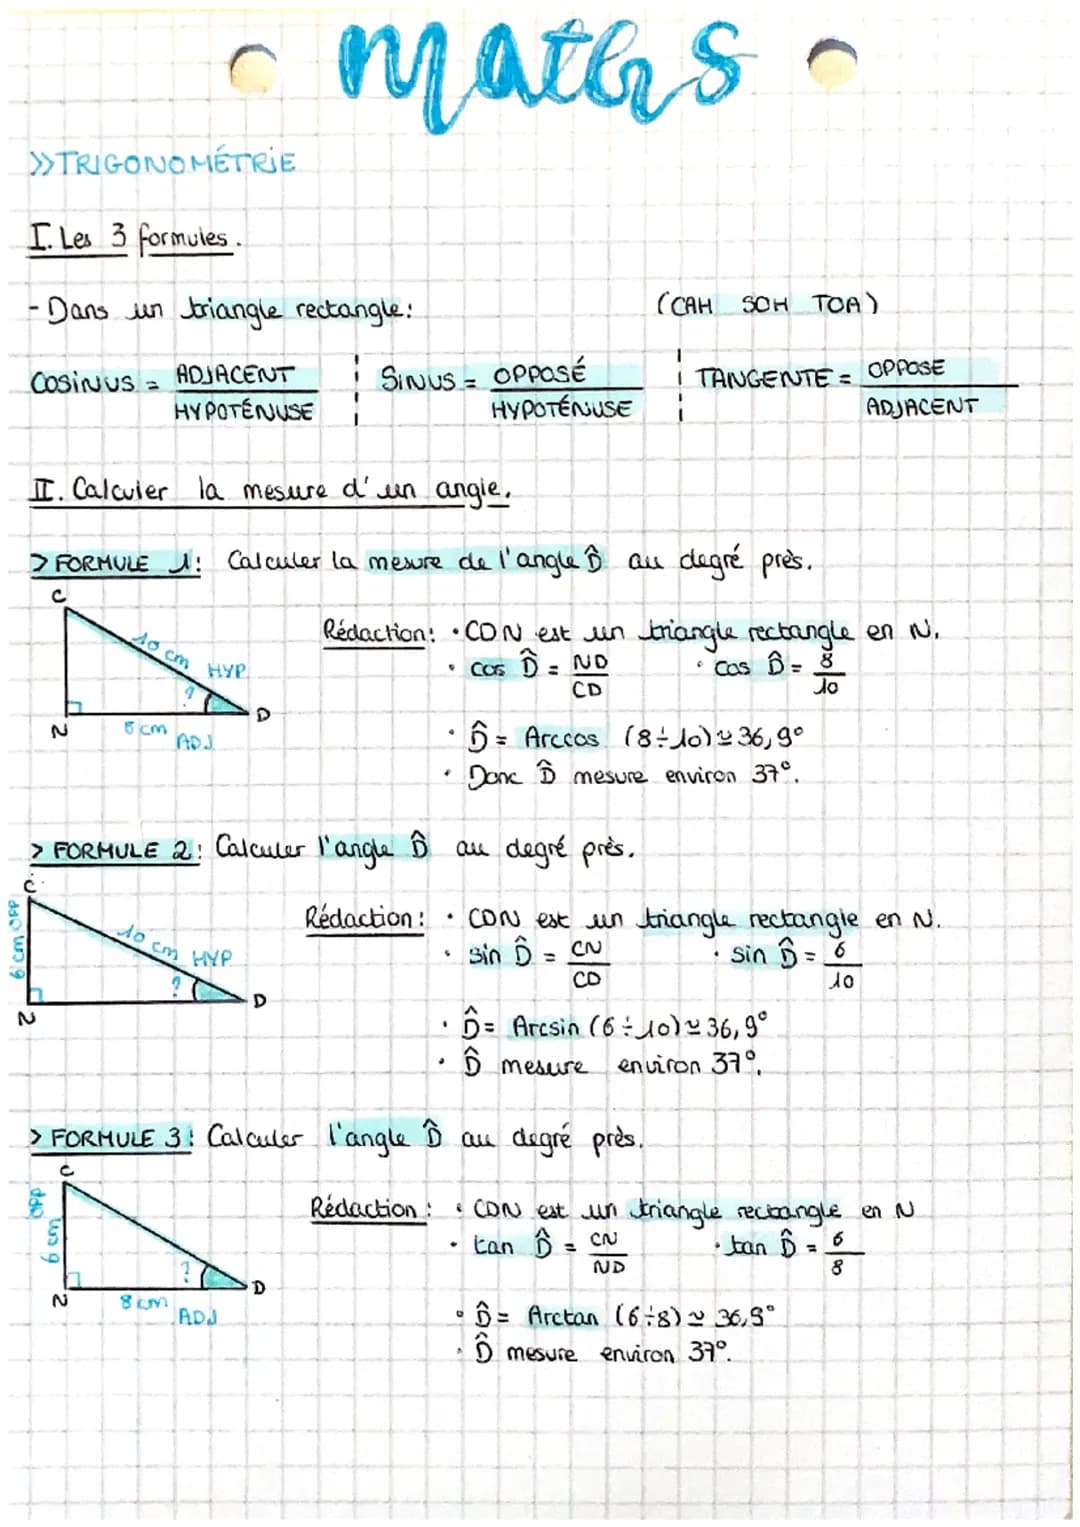 maths
>>TRIGONOMÉTRIE
I. Les 3 formules.
- Dans un triangle rectangle: (CAH SOH TOA)
COSINUS = ADJACENT / HYPOTÉNUSE SINUS = OPPOSÉ / HYPOTÉNUSE TANGENTE = OPPOSÉ / ADJACENT
II. Calculer la mesure d'un angle.
> FORMULE 1: Calculer la mesure de l'angle D̂ au degré près.
C
10 cm HYP
?
N 8 cm ADJ D
Rédaction: • CDN est un triangle rectangle en N.
• cos D̂ = ND / CD • cos D̂ = 8 / 10
• D̂ = Arccos (8÷10) ≃ 36,9°
• Donc D̂ mesure environ 37°.
> FORMULE 2: Calculer l'angle D̂ au degré près.
C
6 cm OPP
10 cm HYP
?
N D
Rédaction: • CDN est un triangle rectangle en N.
• sin D̂ = CN / CD • sin D̂ = 6 / 10
• D̂ = Arcsin (6÷10) ≃ 36,9°
• D̂ mesure environ 37°.
> FORMULE 3: Calculer l'angle D̂ au degré près.
C
6 cm OPP
?
N 8 cm ADJ D
Rédaction: • CDN est un triangle rectangle en N
• tan D̂ = CN / ND • tan D̂ = 6 / 8
• D̂ = Arctan (6÷8) ≃ 36,9°
• D̂ mesure environ 37°.